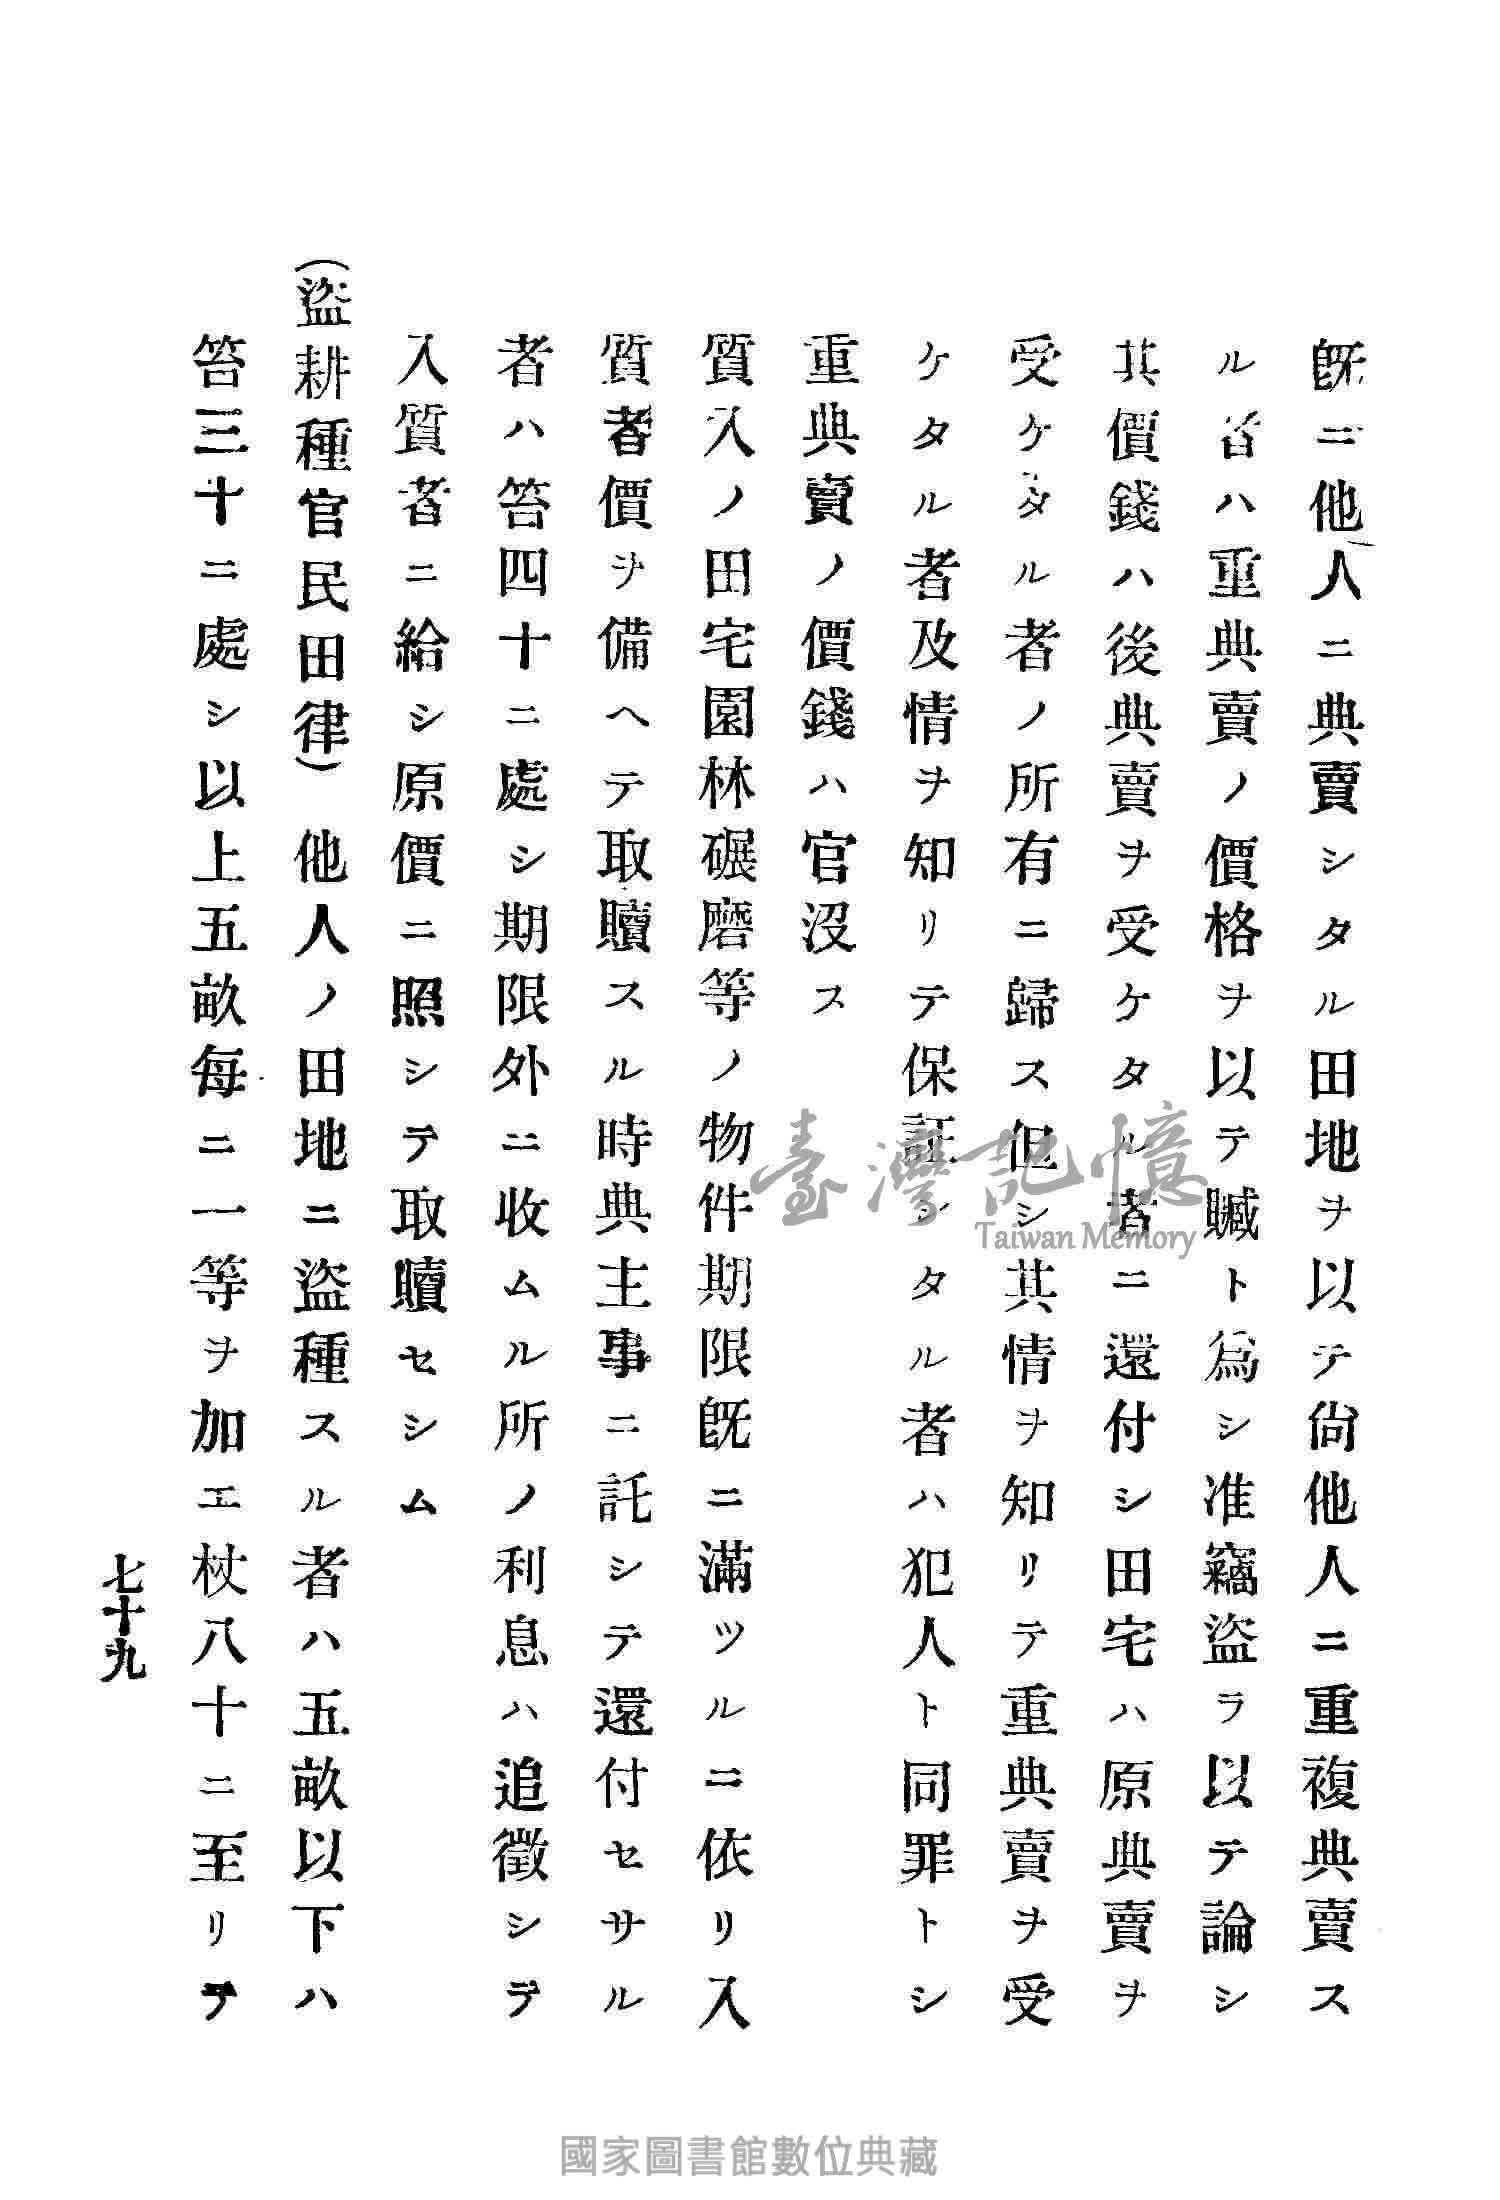 既ニ他人ニ典賣シタル田地ヲ以テ尙他人ニ重複典賣ス
ル者ハ重典賣ノ價格ヲ以テ贓ト爲シ准竊盜ヲ以テ論シ
其價錢ハ後典賣ヲ受ケタル者ニ還付シ田宅ハ原典賣ヲ
受ケタル者ノ所有ニ歸ス但シ其情ヲ知リテ重典賣ヲ受
ケタル者及情ヲ知リテ保証シタル者ハ犯人ト同罪トシ
重典賣ノ價錢ハ官沒ス
質入ノ田宅園林碾磨等ノ物件期限既ニ滿ツルニ依リ入
質者價ヲ備ヘテ取贖スル時典主事ニ託シテ還付セサル
者ハ笞四十ニ處シ期限外ニ收ムル所ノ利息ハ追徵シテ
入質者ニ給シ原價ニ照シテ取贖セシム
(盜耕種官民田律)他人ノ田地ニ盜種スル者ハ五畝以下ハ
笞三十ニ處シ以上五畝每ニ一等ヲ加エ杖八十ニ至リテ
七十九
臺灣記憶
Taiwan Memory
國家圖書館數位典藏